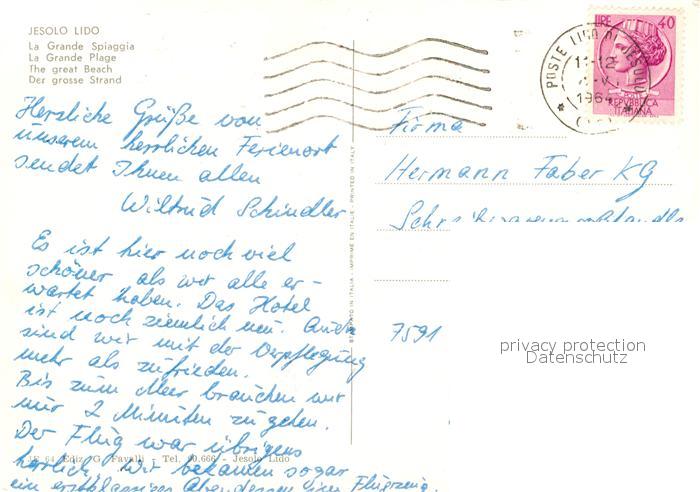 JESOLO LIDO
La Grande Spiaggia
La Grande Plage
The great Beach
Der grosse Strand
POSTE LIDO DI JESOLO
11-12
1964
LIRE 40
POSTE
REPVBBLICA
ITALIANA
Herzliche Grüße von
unserem herrlichen Ferienort
sendet Ihnen allen
Wiltrud Schindler
Es ist hier noch viel
schöner als wir alle er-
wartet haben. Das Hotel
ist noch ziemlich neu. Auch
sind wir mit der Verpflegung
mehr als zufrieden.
Bis zum Meer brauchen wir
nur 2 Minuten zu gehen.
Der Flug war übrigens
herrlich. Wir bekamen sogar
ein erstklassiges Abendessen im Flugzeug.
STAMPATO IN ITALIA - IMPRIMÉ EN ITALIE - PRINTED IN ITALY
Firma
Hermann Faber KG
7591
privacy protection
Datenschutz
JE 64 Ediz. G. Favalli - Tel. 90.666 - Jesolo Lido